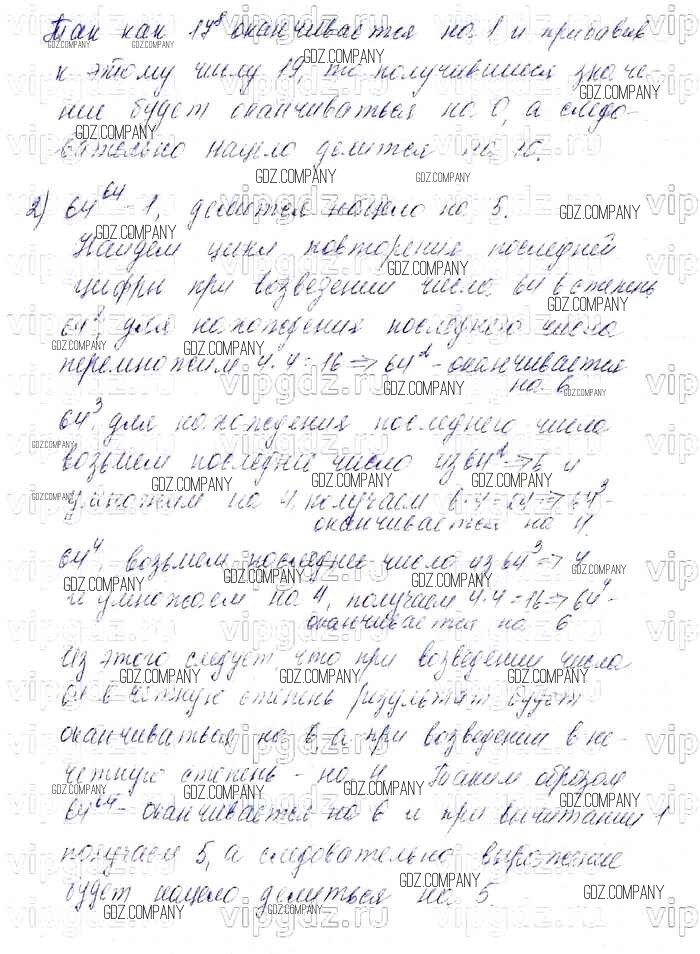 Так как 17⁸ оканчивается на 1 и прибавив
к этому числу 19, то получившееся значе-
ние будет оканчиваться на 0, а следо-
вательно нацело делится на 10.
2) 64⁶⁴ - 1, делится нацело на 5.
Найдем цикл повторения последней
цифры при возведении числа 64 в степень
64², для нахождения последнего числа
перемножим 4·4=16 => 64² - оканчивается
на 6
64³, для нахождения последнего числа
возьмем последнее число из 64² => 6 и
умножим на 4, получаем 6·4=24 => 64³ -
оканчивается на 4.
64⁴, возьмем последнее число из 64³ => 4
и умножаем на 4, получаем 4·4=16 => 64⁴ -
оканчивается на 6
Из этого следует, что при возведении числа
64 в четную степень результат будет
оканчиваться на 6, а при возведении в не-
четную степень - на 4. Таким образом
64⁶⁴ - оканчивается на 6 и при вычитании 1
получаем 5, а следовательно выражение
будет нацело делиться на 5.
GDZ.COMPANY
vipgdz.ru